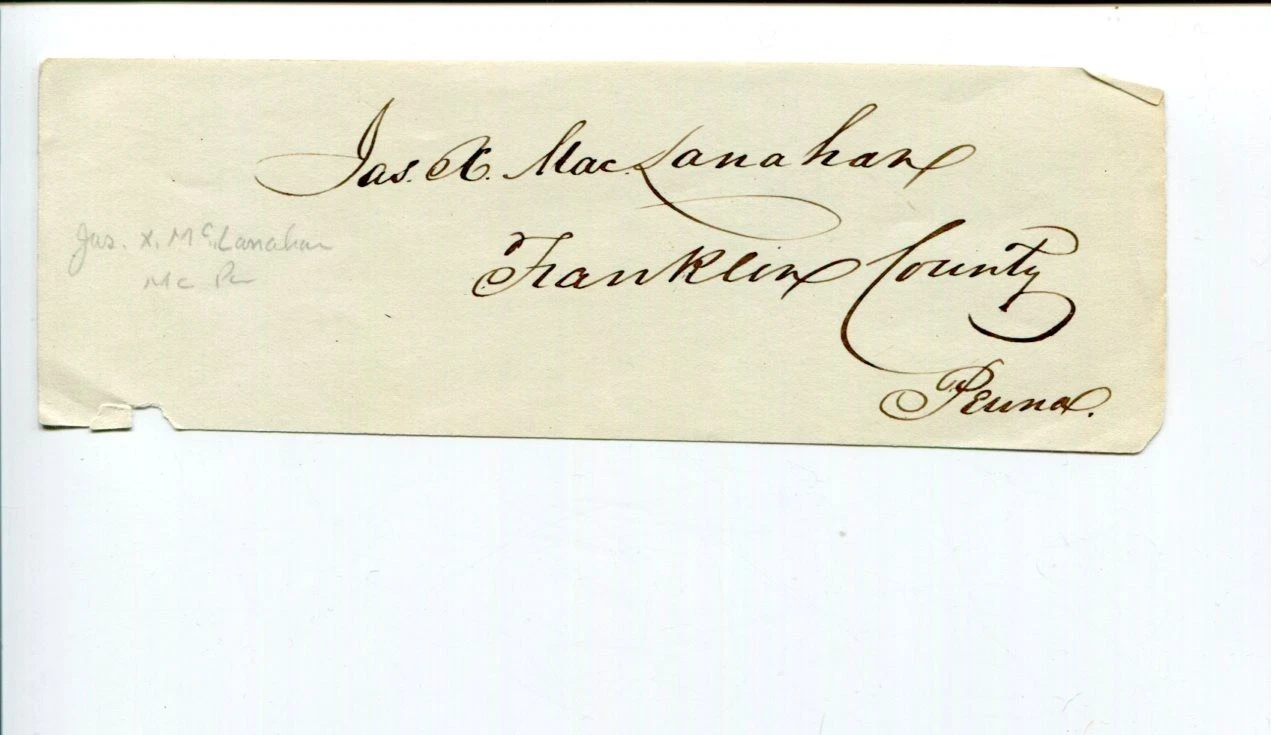 Jas. X. MacLanahan
Franklin County
Penna.
Jas. X. McLanahan
MC Pa